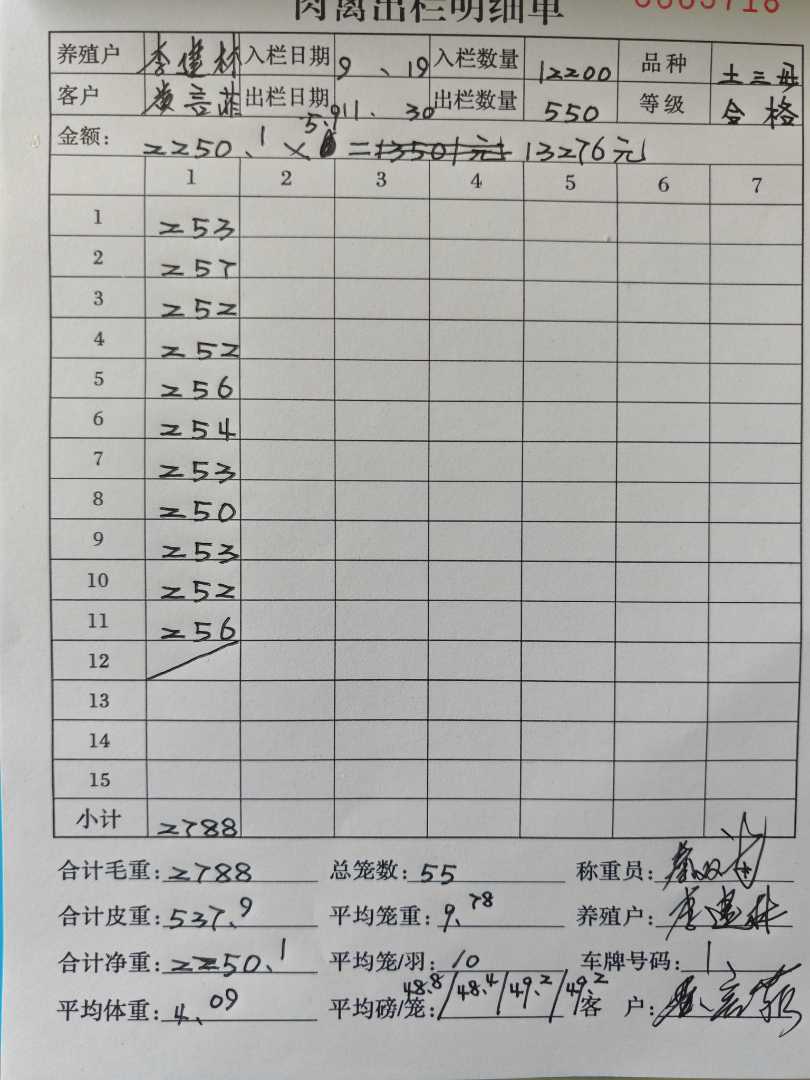 肉禽出栏明细单
养殖户 李建林 入栏日期 9、19 入栏数量 12200 品种 土三母
客户 出栏日期 11.30 出栏数量 550 等级 合格
金额: 2250.1 × 5.9 = 13501元 13276元
1 2 3 4 5 6 7
1 253
2 257
3 252
4 252
5 256
6 254
7 253
8 250
9 253
10 252
11 256
12
13
14
15
小计 2788
合计毛重: 2788 总笼数: 55 称重员:
合计皮重: 537.9 平均笼重: 9.78 养殖户: 李建林
合计净重: 2250.1 平均笼/羽: 10 车牌号码: 1、
平均体重: 4.09 平均磅/笼: 48.8/48.4/49.2/49.2 客 户: